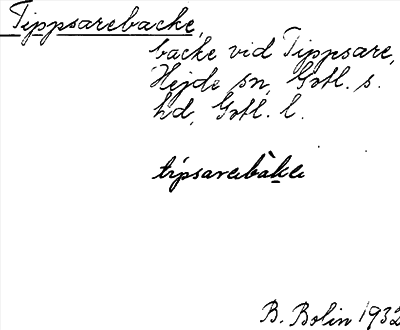 Tippsarebacke,
backe vid Tippsare,
Hejde sn, Gotl. s.
hd, Gotl. l.
tipsarebàke
B. Bolin 1932